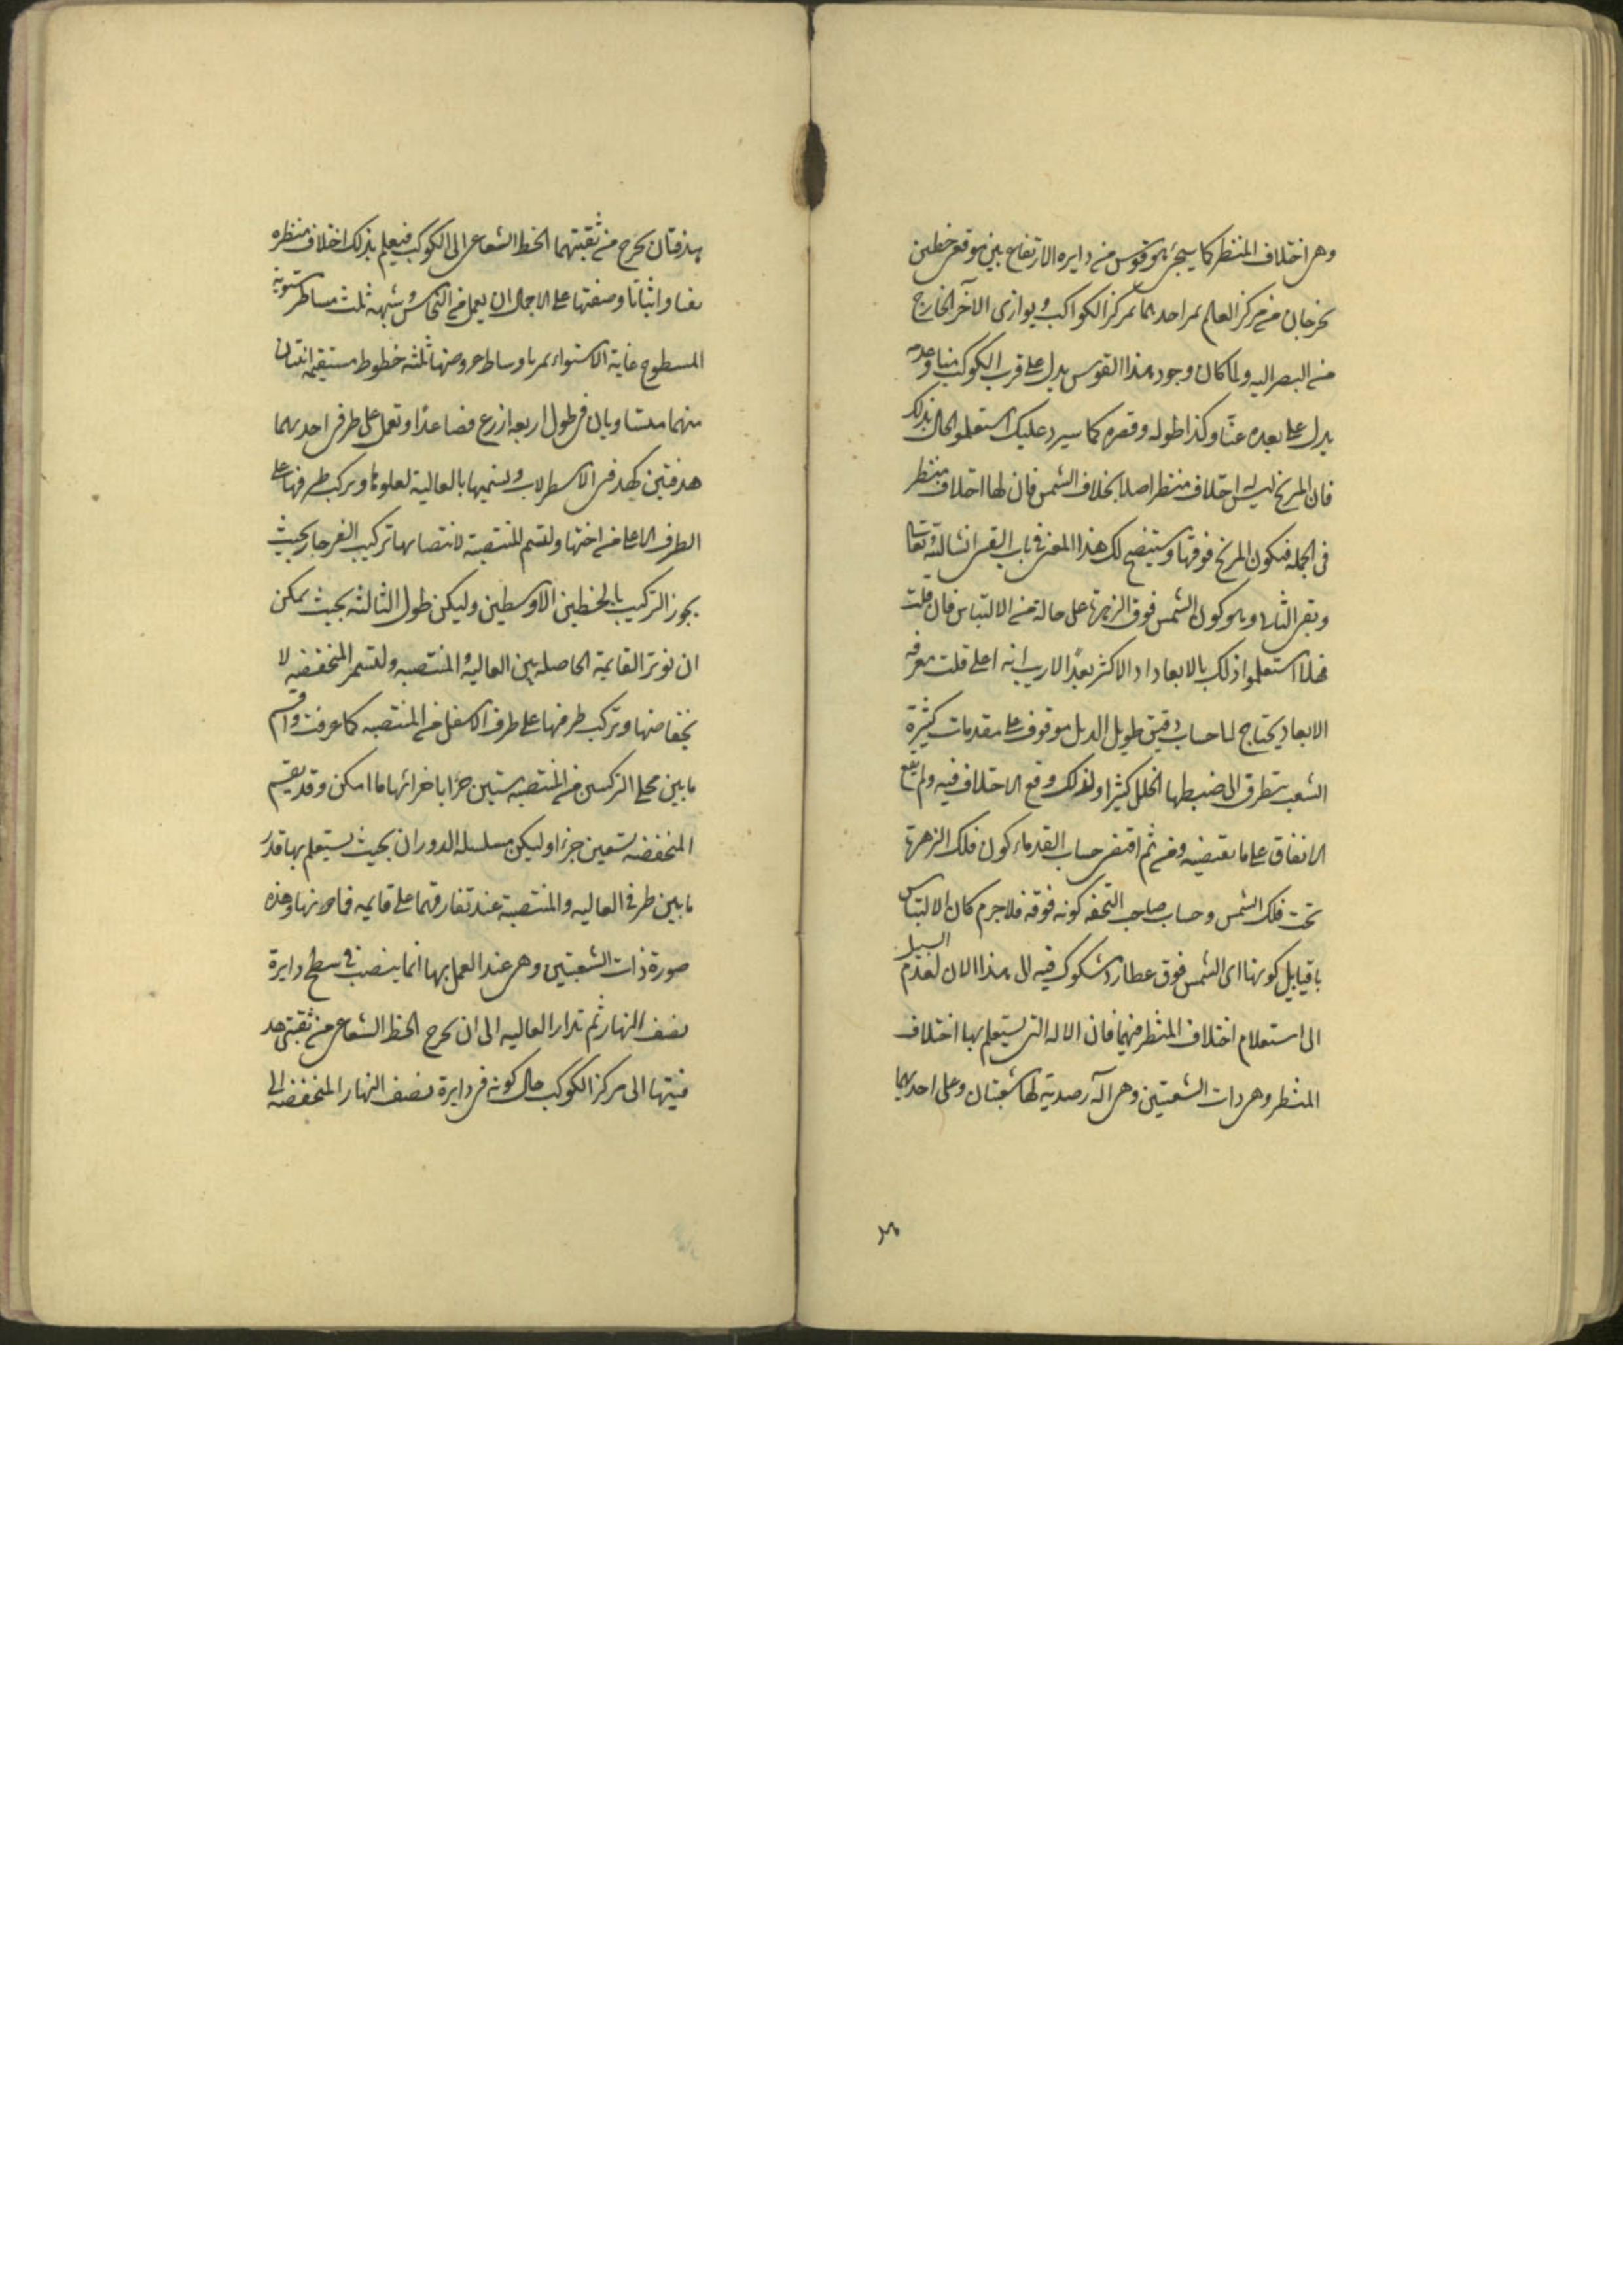 وهى اختلاف المنظر كما سيجئ هو قوس من دايره الارتفاع بين موقعى خطين
يخرجان من مركز العالم يمر احدهما بمركز الكواكب ويوازى الآخر الخارج
من البصر اليه ولما كان وجود هذا القوس يدل على قرب الكوكب منا وعدمه
يدل على بعده عنا وكذا طوله وقصره كما سيرد عليك استعلموا الحال بذلك
فان المريخ ليس له اختلاف منظر اصلا بخلاف الشمس فان لها اختلاف منظر
فى الجمله فيكون المريخ فوقها وسيتضح لك هذا المعنى فى باب القمر انشا الله تعالى
وبقى الثانى وهو كون الشمس فوق الزهرة على حالة من الالتباس فان قلت
هلا استعلموا ذلك بالابعاد اذ الاكثر بعدا لاريب انه اعلى قلت معرفه
الابعاد يحتاج الى حساب دقيق طويل الذيل موقوف على مقدمات كثيرة
الشعب يتطرق الى ضبطها الخلل كثيرا ولذلك وقع الاختلاف فيه ولم يقع
الاتفاق على ما يقتضيه ومن ثم اقتضى حساب القدماء كون فلك الزهرة
تحت فلك الشمس وحساب صاحب التحفه كونه فوقه فلاجرم كان الالتباس
باقيا بل كونها اى الشمس فوق عطارد مشكوك فيه الى هذا الان لعدم السبيل
الى استعلام اختلاف المنظر فيهما فان الاله التى يستعلم بها اختلاف
المنظر وهى ذات الشعبتين وهى آلة رصدية لها شعبتان وعلى احديهما
هدفتان يخرج من ثقبتهما الخط الشعاعى الى الكوكب فيعلم بذلك اختلاف منظره
نفيا واثباتا وصنعتها على الاجمال ان يعمل من النحاس وشبهه ثلث مساطر مستوية
السطوح غاية الاستواء يمر باوساط عروضها ثلثه خطوط مستقيمه اثنتان
منهما متساويان فى طول اربعه اذرع فصاعدا وتعمل على طرفى احديهما
هدفتين كهدفى الاسطرلاب ونسميها بالعالية لعلوها ويركب طرفها على
الطرف الاعلى من اختها ولتسم المنتصبة لانتصابها تركيب الفرجار بحيث
يجوز التركيب بالخطين الاوسطين وليكن طول الثالثه بحيث يمكن
ان نوتر القايمة الحاصله بين العاليه والمنتصبه ولتسم المنخفضه لا
نخفاضها وتركب طرفها على طرف الاسفل من المنتصبه كما عرفت واقسم
ما بين محلى التركيبين من المنتصبه ستين جزا باجزائها ما امكن وقد يقسم
المنخفضه تسعين جزء اوليكن مسلسله الدوران بحيث يستعلم بها قدر
ما بين طرفى العاليه والمنتصبة عند تفارقهما على قايمه فما دونها وهذه
صورة ذات الشعبتين وهى عند العمل بها انما ينصب فى سطح دايرة
نصف النهار ثم تدار العاليه الى ان يخرج الخط الشعاعى من ثقبتى هد
فيتها الى مركز الكوكب حال كونه فى دايرة نصف النهار المنخفضه الى